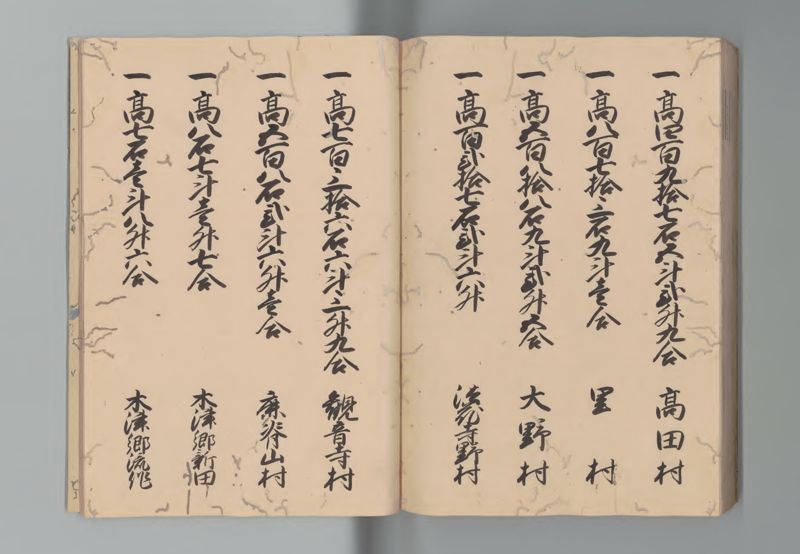 一高四百九拾七石五斗弐升九合 高田村
一高八百七拾三石九斗壱合 里村
一高五百八拾八石九斗弐升六合 大野村
一高百弐拾七石弐斗六升 法花寺野村
一高七百三拾六石六斗三升九合 観音寺村
一高五百八石弐斗六升壱合 鹿背山村
一高八石七斗壱升七合 木津郷新田
一高七石壱斗八升六合 木津郷流作